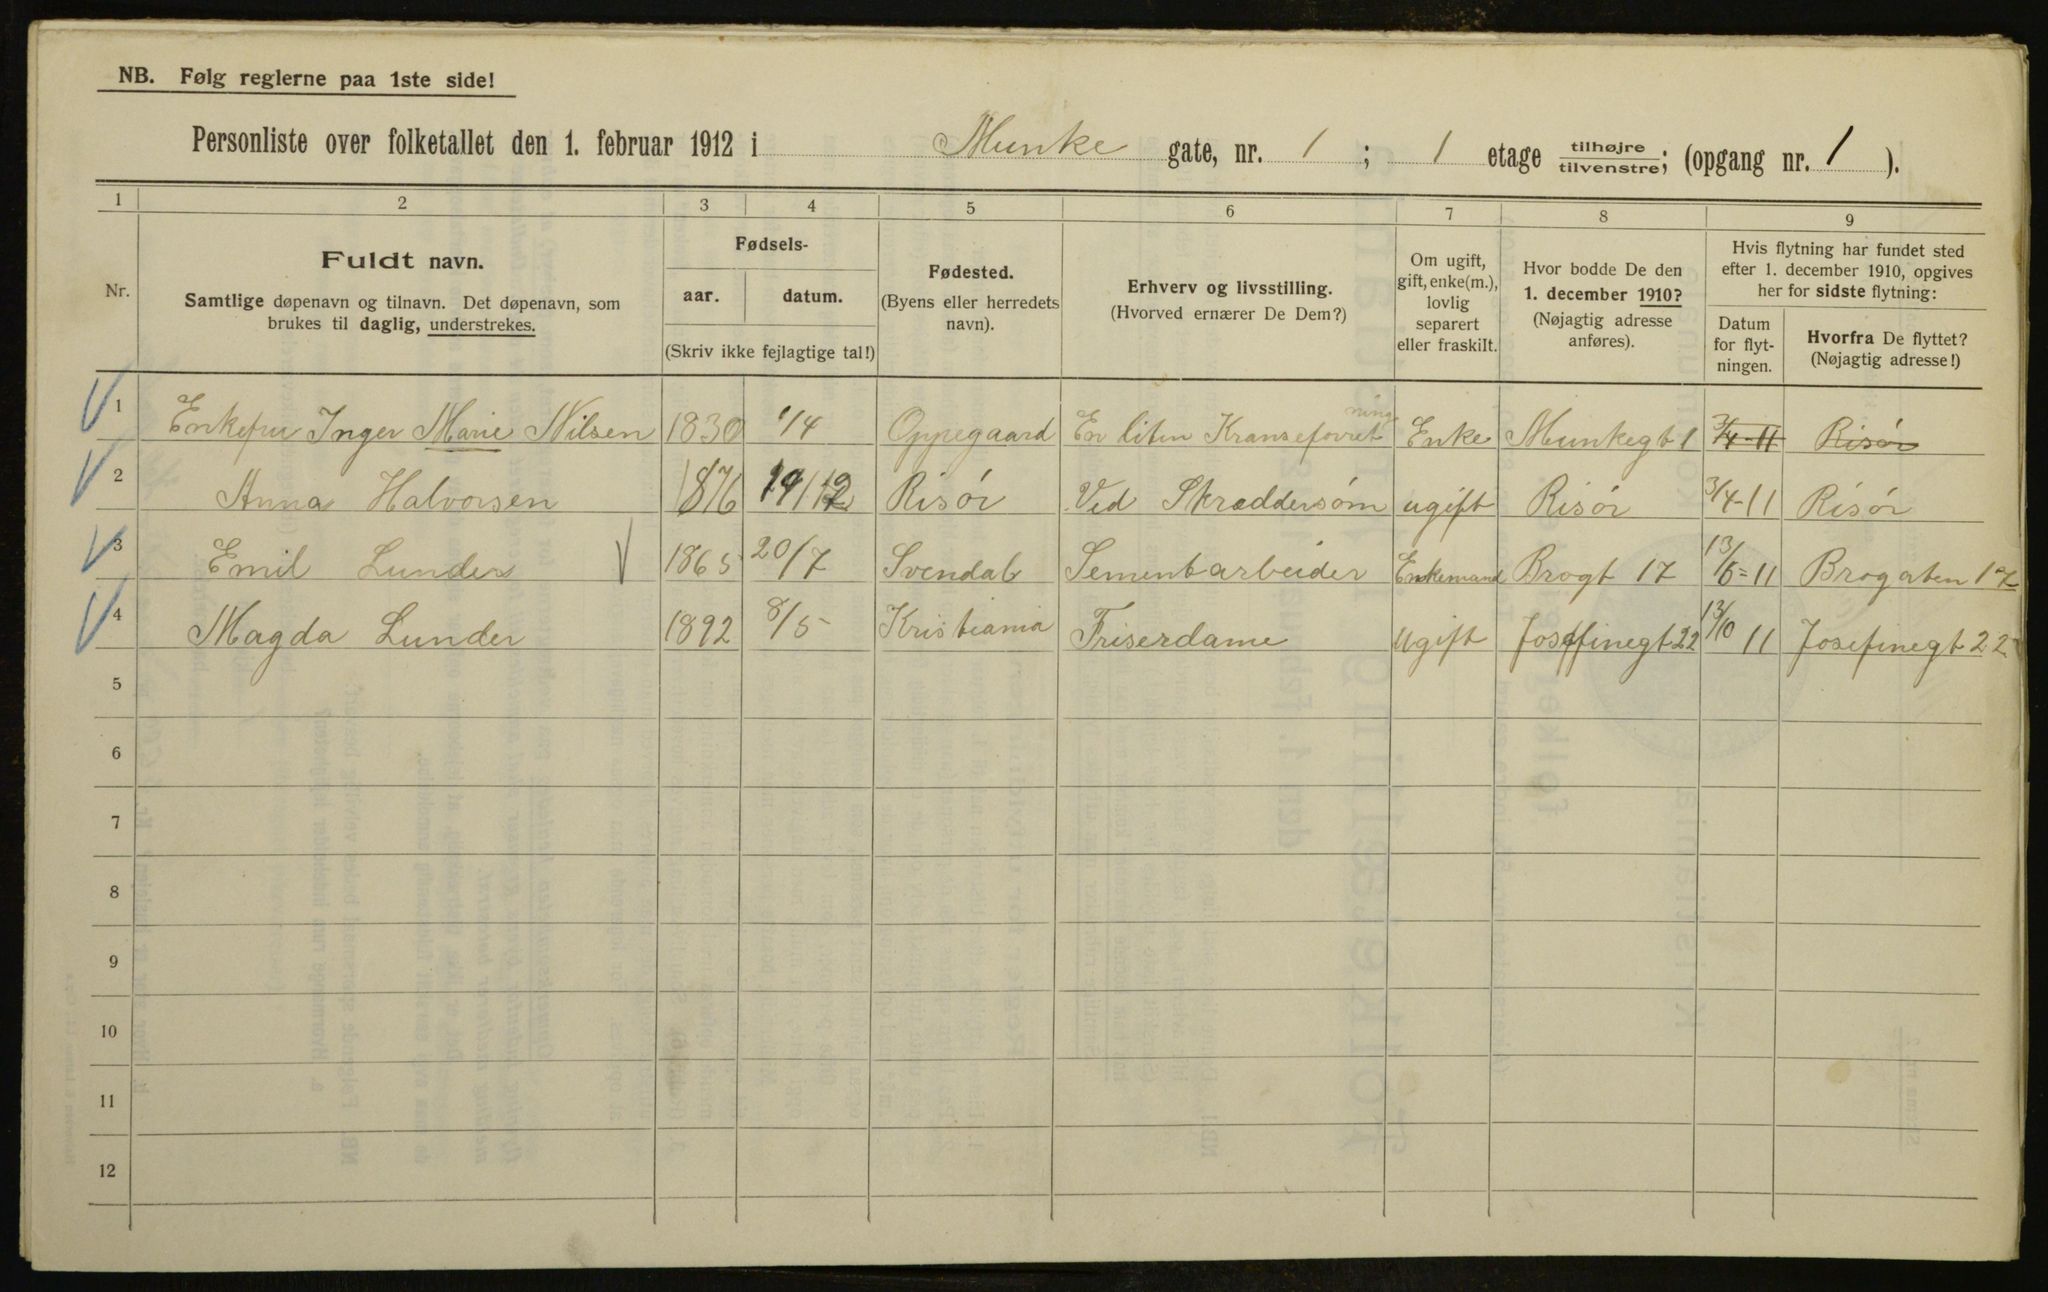 NB. Følg reglerne paa 1ste side!
Personliste over folketallet den 1. februar 1912 i Munke gate, nr. 1 ; 1 etage tilhøjre/tilvenstre; (opgang nr. 1 ).
1 2 3 4 5 6 7 8 9
Nr.
Fuldt navn.
Samtlige døpenavn og tilnavn. Det døpenavn, som
brukes til daglig, understrekes.
Fødsels-
aar. datum.
(Skriv ikke fejlagtige tal!)
Fødested.
(Byens eller herredets
navn).
Erhverv og livsstilling.
(Hvorved ernærer De Dem?)
Om ugift,
gift, enke(m.),
lovlig
separert
eller fraskilt.
Hvor bodde De den
1. december 1910?
(Nøjagtig adresse
anføres).
Hvis flytning har fundet sted
efter 1. december 1910, opgives
her for sidste flytning:
Datum
for flyt-
ningen.
Hvorfra De flyttet?
(Nøjagtig adresse!)
1 Enkefru Inger Marie Nilsen 1830 1/4 Oppegaard En liten Enke Munkegt 1 3/4-11 Risør
2 Anna Halvorsen 1876 Risør Ved Skræddersøm ugift Risør 3/4-11 Risør
3 Emil Lunder 1865 20/7 Sementarbeider Enkemand Brogt 17 13/5-11 Brogaten 17
4 Magda Lunder 1892 8/5 Kristiania Friserdame ugift Josefinegt 22 13/10 11 Josefinegt 22
5
6
7
8
9
10
11
12